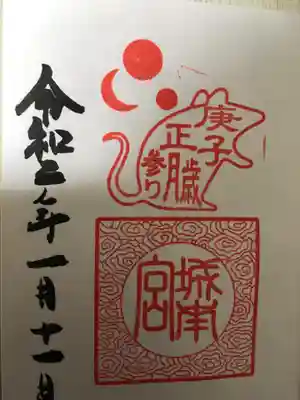 庚子
正
参り
城南
宮
令和二年一月十一日